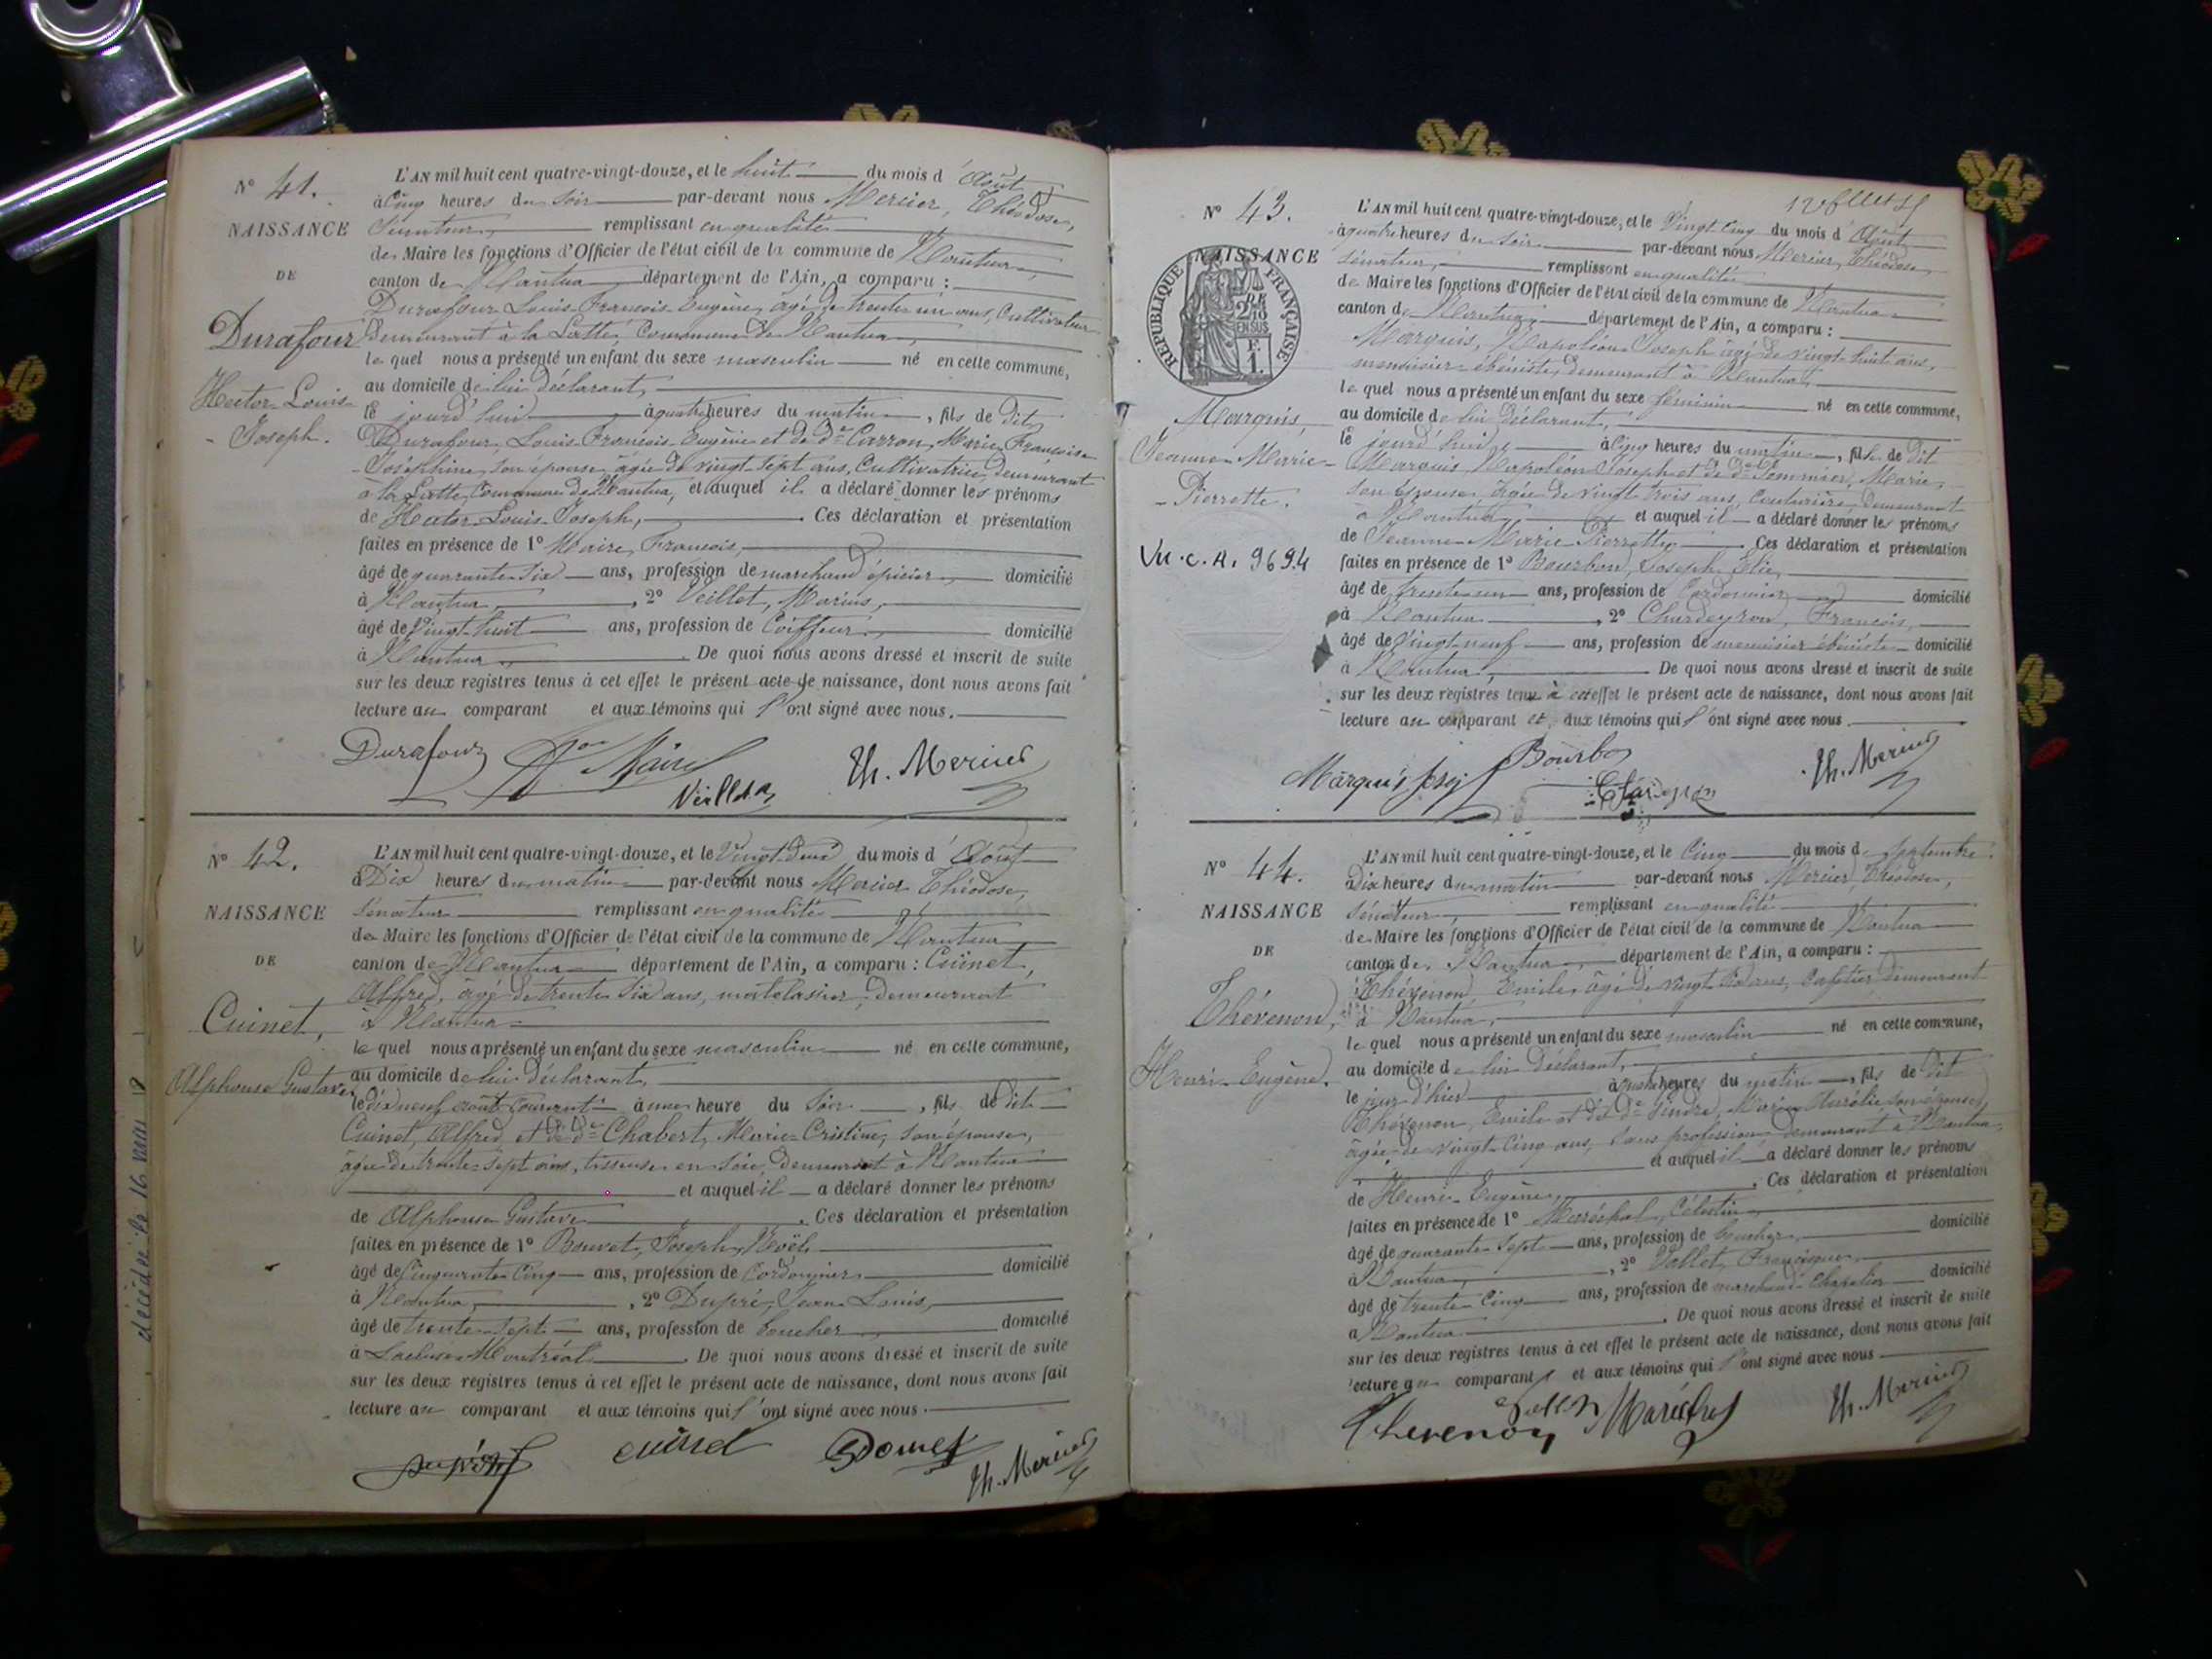 N° 41.
NAISSANCE
DE
Durafour
Hector Louis
Joseph.
L'AN mil huit cent quatre-vingt-douze, et le huit du mois d'Août
à Cinq heures du Soir par-devant nous Mercier, Théodose,
Sénateur, remplissant en qualité
de Maire les fonctions d'Officier de l'état civil de la commune de Nantua,
canton de Nantua département de l'Ain, a comparu :
Durafour Louis François Eugène, âgé de trente un ans, Cultivateur
demeurant à la Latte, Commune de Nantua,
le quel nous a présenté un enfant du sexe masculin né en cette commune,
au domicile de lui déclarant,
le jourd'hui à quatre heures du matin, fils de dit
Durafour, Louis François Eugène et de De Carron, Marie Françoise
Joséphine, son épouse, âgée de vingt-sept ans, Cultivatrice, demeurant
à la Latte, Commune de Nantua, et auquel il a déclaré donner les prénoms
de Hector Louis Joseph, Ces déclaration et présentation
faites en présence de 1° Maire, François,
âgé de quarante-six ans, profession de marchand épicier, domicilié
à Nantua, 2° Veillet, Marius,
âgé de vingt-huit ans, profession de Coiffeur, domicilié
à Nantua. De quoi nous avons dressé et inscrit de suite
sur les deux registres tenus à cet effet le présent acte de naissance, dont nous avons fait
lecture au comparant et aux témoins qui l'ont signé avec nous.
Durafour Maire Veillet Th. Mercier
N° 42.
NAISSANCE
DE
Cuinet,
Alphonse Gustave
décédé le 16 mai
L'AN mil huit cent quatre-vingt-douze, et le Vingt-deux du mois d'Août
à Dix heures du matin par-devant nous Mercier Théodose,
Sénateur remplissant en qualité
de Maire les fonctions d'Officier de l'état civil de la commune de Nantua
canton de Nantua département de l'Ain, a comparu : Cuinet,
Alfred, âgé de trente six ans, matelassier, demeurant
à Nantua
le quel nous a présenté un enfant du sexe masculin né en cette commune,
au domicile de lui déclarant,
le dix neuf août courant à une heure du Soir, fils de dit
Cuinet, Alfred et de De Chabert, Marie-Cristine, son épouse,
âgée de trente-sept ans, tisseuse en soie, demeurant à Nantua
et auquel il a déclaré donner les prénoms
de Alphonse Gustave. Ces déclaration et présentation
faites en présence de 1° Bouvet, Joseph, Noël
âgé de cinquante-cinq ans, profession de Cordonnier domicilié
à Nantua, 2° Dupré, Jean Louis,
âgé de trente-sept ans, profession de boucher domicilié
à Lacluse-Montréal. De quoi nous avons dressé et inscrit de suite
sur les deux registres tenus à cet effet le présent acte de naissance, dont nous avons fait
lecture au comparant et aux témoins qui l'ont signé avec nous.
cuinet Bouvet Th. Mercier
N° 43.
NAISSANCE
DE
RÉPUBLIQUE FRANÇAISE
2/10 EN SUS
F. 1.
Marquis,
Jeanne-Marie-
Pierrette.
Vu. c. A. 9694
L'AN mil huit cent quatre-vingt-douze, et le Vingt-cinq du mois d'Août
à quatre heures du Soir par-devant nous Mercier, Théodose
sénateur, remplissant en qualité
de Maire les fonctions d'Officier de l'état civil de la commune de Nantua
canton de Nantua, département de l'Ain, a comparu :
Marquis, Napoléon Joseph âgé de vingt-huit ans,
menuisier-ébéniste, demeurant à Nantua,
le quel nous a présenté un enfant du sexe féminin né en cette commune,
au domicile de lui déclarant,
le jourd'hui à Cinq heures du matin, fille de dit
Marquis, Napoléon Joseph et de De Sommier, Marie,
Son épouse, âgée de vingt-trois ans, Couturière demeurant
à Nantua et auquel il a déclaré donner les prénoms
de Jeanne Marie Pierrette. Ces déclaration et présentation
faites en présence de 1° Bourbon, Joseph Elie,
âgé de trente-un ans, profession de Cordonnier domicilié
à Nantua, 2° Chardeyron, François,
âgé de vingt-neuf ans, profession de menuisier ébéniste domicilié
à Nantua. De quoi nous avons dressé et inscrit de suite
sur les deux registres tenus à cet effet le présent acte de naissance, dont nous avons fait
lecture au comparant et aux témoins qui l'ont signé avec nous.
Marquis Bourbon Th. Mercier
N° 44.
NAISSANCE
DE
Thévenon,
Henri-Eugène.
L'AN mil huit cent quatre-vingt-douze, et le Cinq du mois de Septembre.
à Dix heures du matin par-devant nous Mercier, Théodose,
sénateur, remplissant en qualité
de Maire les fonctions d'Officier de l'état civil de la commune de Nantua
canton de Nantua, département de l'Ain, a comparu :
Thévenon, Emile, âgé de vingt-six ans, Cafetier demeurant
à Nantua,
le quel nous a présenté un enfant du sexe masculin né en cette commune,
au domicile de lui déclarant,
le jour d'hier à quatre heures du matin, fils de dit
Thévenon, Emile et de De Gindre, Marie Aurélie son épouse,
âgée de vingt-cinq ans, Sans profession demeurant à Nantua
et auquel il a déclaré donner les prénoms
de Henri-Eugène. Ces déclaration et présentation
faites en présence de 1° Maréchal, Célestin,
âgé de quarante-sept ans, profession de boucher domicilié
à Nantua, 2° Vallet, Francisque,
âgé de trente-cinq ans, profession de marchand Chapelier domicilié
à Nantua. De quoi nous avons dressé et inscrit de suite
sur les deux registres tenus à cet effet le présent acte de naissance, dont nous avons fait
lecture au comparant et aux témoins qui l'ont signé avec nous
Thevenon Maréchal Th. Mercier